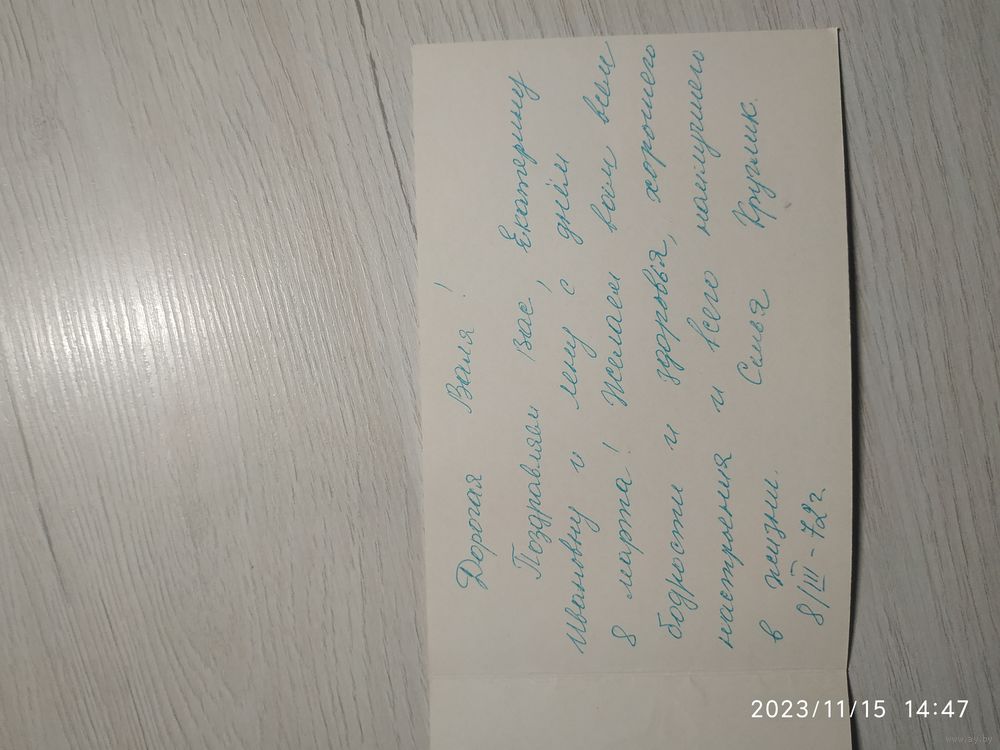 Дорогая Валя!
Поздравляем Вас, Екатерину
Ивановну и Лену с днём
8 марта! Желаем вам всем
бодрости и здоровья, хорошего
настроения и всего наилучшего
в жизни. Семья Круглик.
8/III-72г.
2023/11/15 14:47
www.ay.by